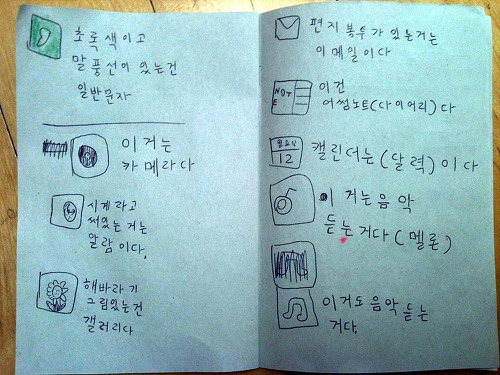 초록색이고
말풍선이 있는건
일반문자
이거는
카메라다
시계라고
써있는거는
알람이다.
해바라기
그림있는건
갤러리다
편지봉투가 있는거는
이메일이다
NOTE
이건
어썸노트(다이어리)다
월요일
12
캘린더는(달력)이다
이거는음악
듣는거다(멜론)
이거도음악듣는
거다.